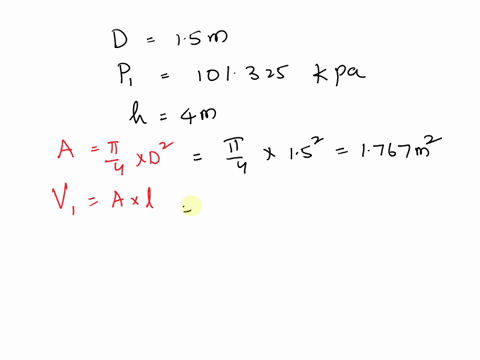 D = 1.5m
P₁ = 101.325 kpa
h = 4m
A = π/4 × D² = π/4 × 1.5² = 1.767m²
V₁ = A × l =